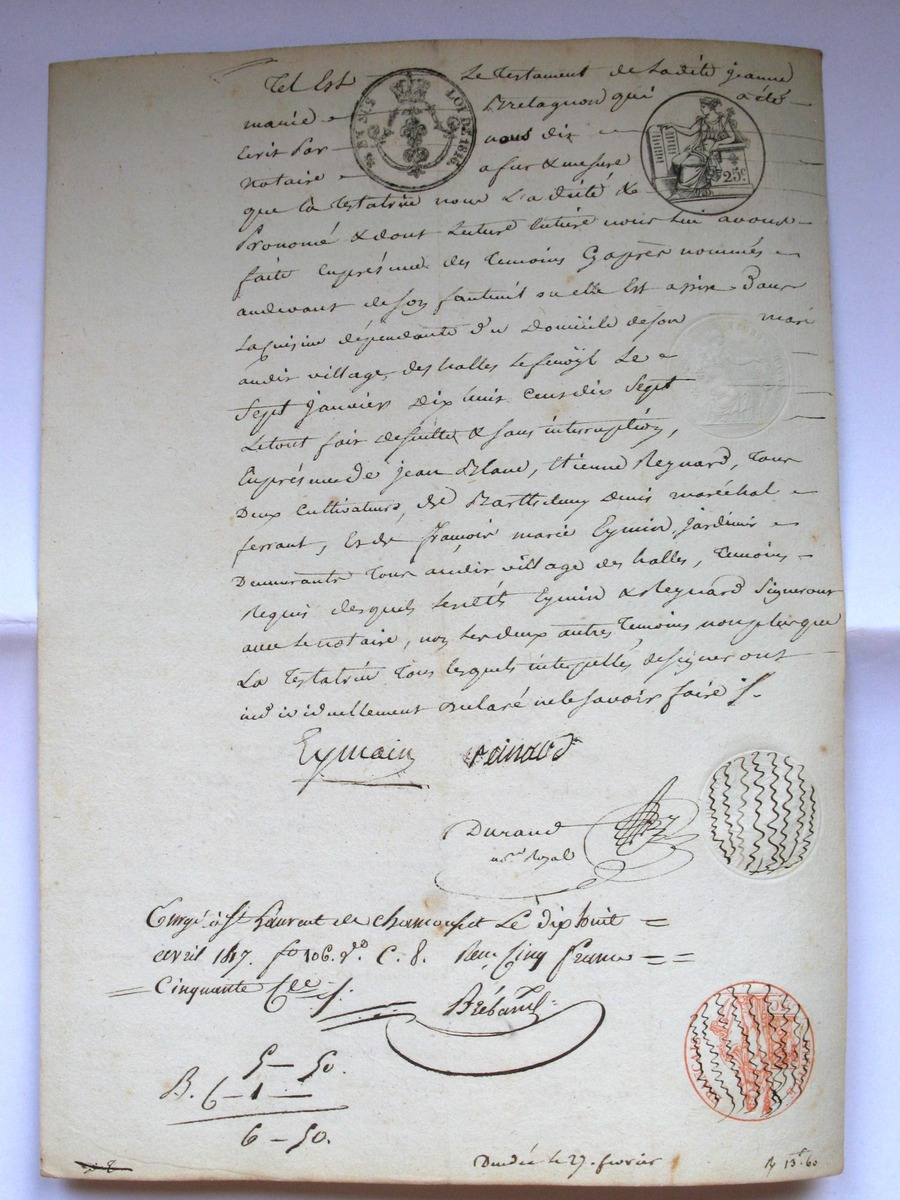 Tel Est Le Testament de Ladite jeanne
marie Bretagnon qui a été
Ecrit Par nous dit
Notaire a fur & mesure
que la Testatrice nous L'a dicté &
Prononcé & dont Lecture Entiere nous Lui avons
faite En présence des Temoins Cy après nommés
audevant de son fauteuil ou elle Est assise Dans
La Cuisine dépendante du Domicile de Son mari
audit village des halles Le Le
Sept janvier Dix huit Cent dix Sept
Letout fait desuitte & sans interruption,
En présence de jean Blanc, Etienne Reynard, Tous
Deux Cultivateurs, de Barthelemy Denis maréchal
ferrant, Et de françois marie Eymin jardinier
Demeurants Tous audit village des halles, Temoins
Requis desquels Lesdits Eymin & Reynard Signeront
avec Le notaire, non Les deux autres Temoins non plus que
La Testatrice Tous lesquels interpellés de signer ont
individuellement Declaré ne le savoir faire
Eymain Reinard
Durand
Royal
Enrgé à St Laurent de chamousset Le dix huit
avril 1817. fo 106. Vo C. 8. Reçu Cinq francs
Cinquante
Brébant
5 — 50.
B. 6 — 1 —
6 — 50.
le 27 fevrier
LOI DE 1816.
25c